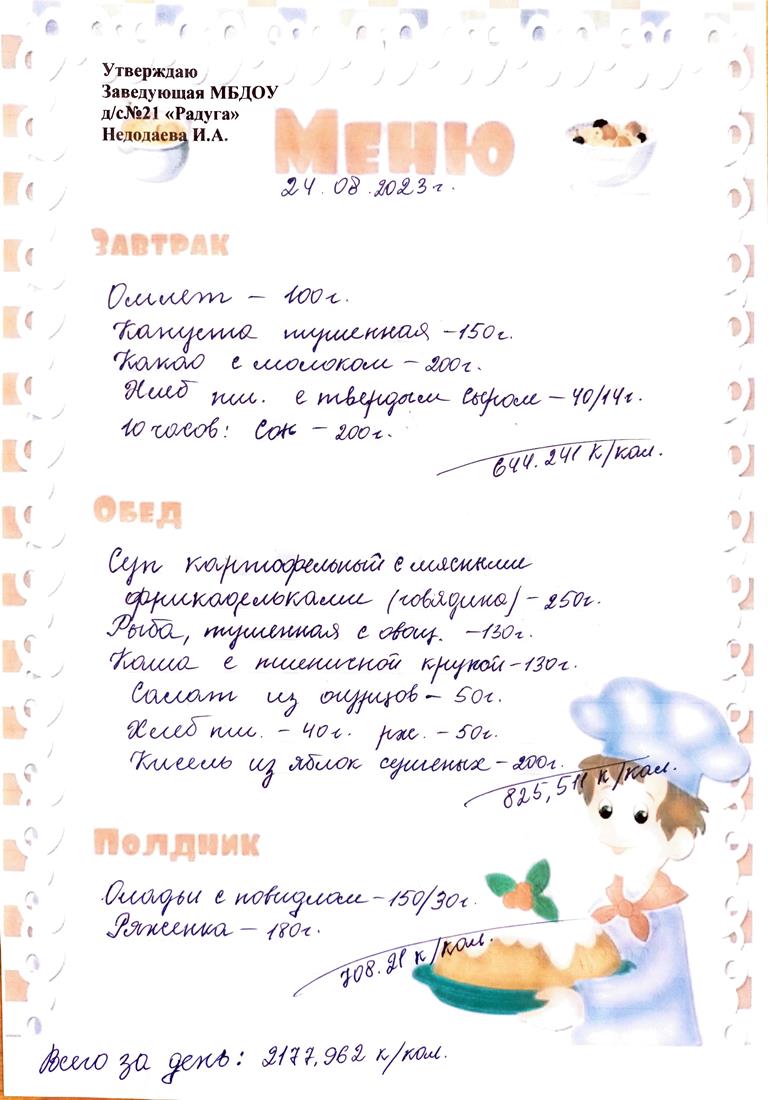 Утверждаю
Заведующая МБДОУ
д/с№21 «Радуга»
Недодаева И.А.
Меню
24.08.2023г.
Завтрак
Омлет – 100г.
Капуста тушенная – 150г.
Какао с молоком – 200г.
Хлеб пш. с твердым сыром – 40/14г.
10 часов: Сок – 200г.
644.241 к/кал.
Обед
Суп картофельный с мясными
фрикадельками (говядина) – 250г.
Рыба, тушенная с овощ. – 130г.
Каша с пшеничной крупой – 130г.
Салат из огурцов – 50г.
Хлеб пш. – 40г. рж. – 50г.
Кисель из яблок сушеных – 200г.
825,511 к/кал.
Полдник
Оладьи с повидлом – 150/30г.
Ряженка – 180г.
708.21 к/кал.
Всего за день: 2177,962 к/кал.